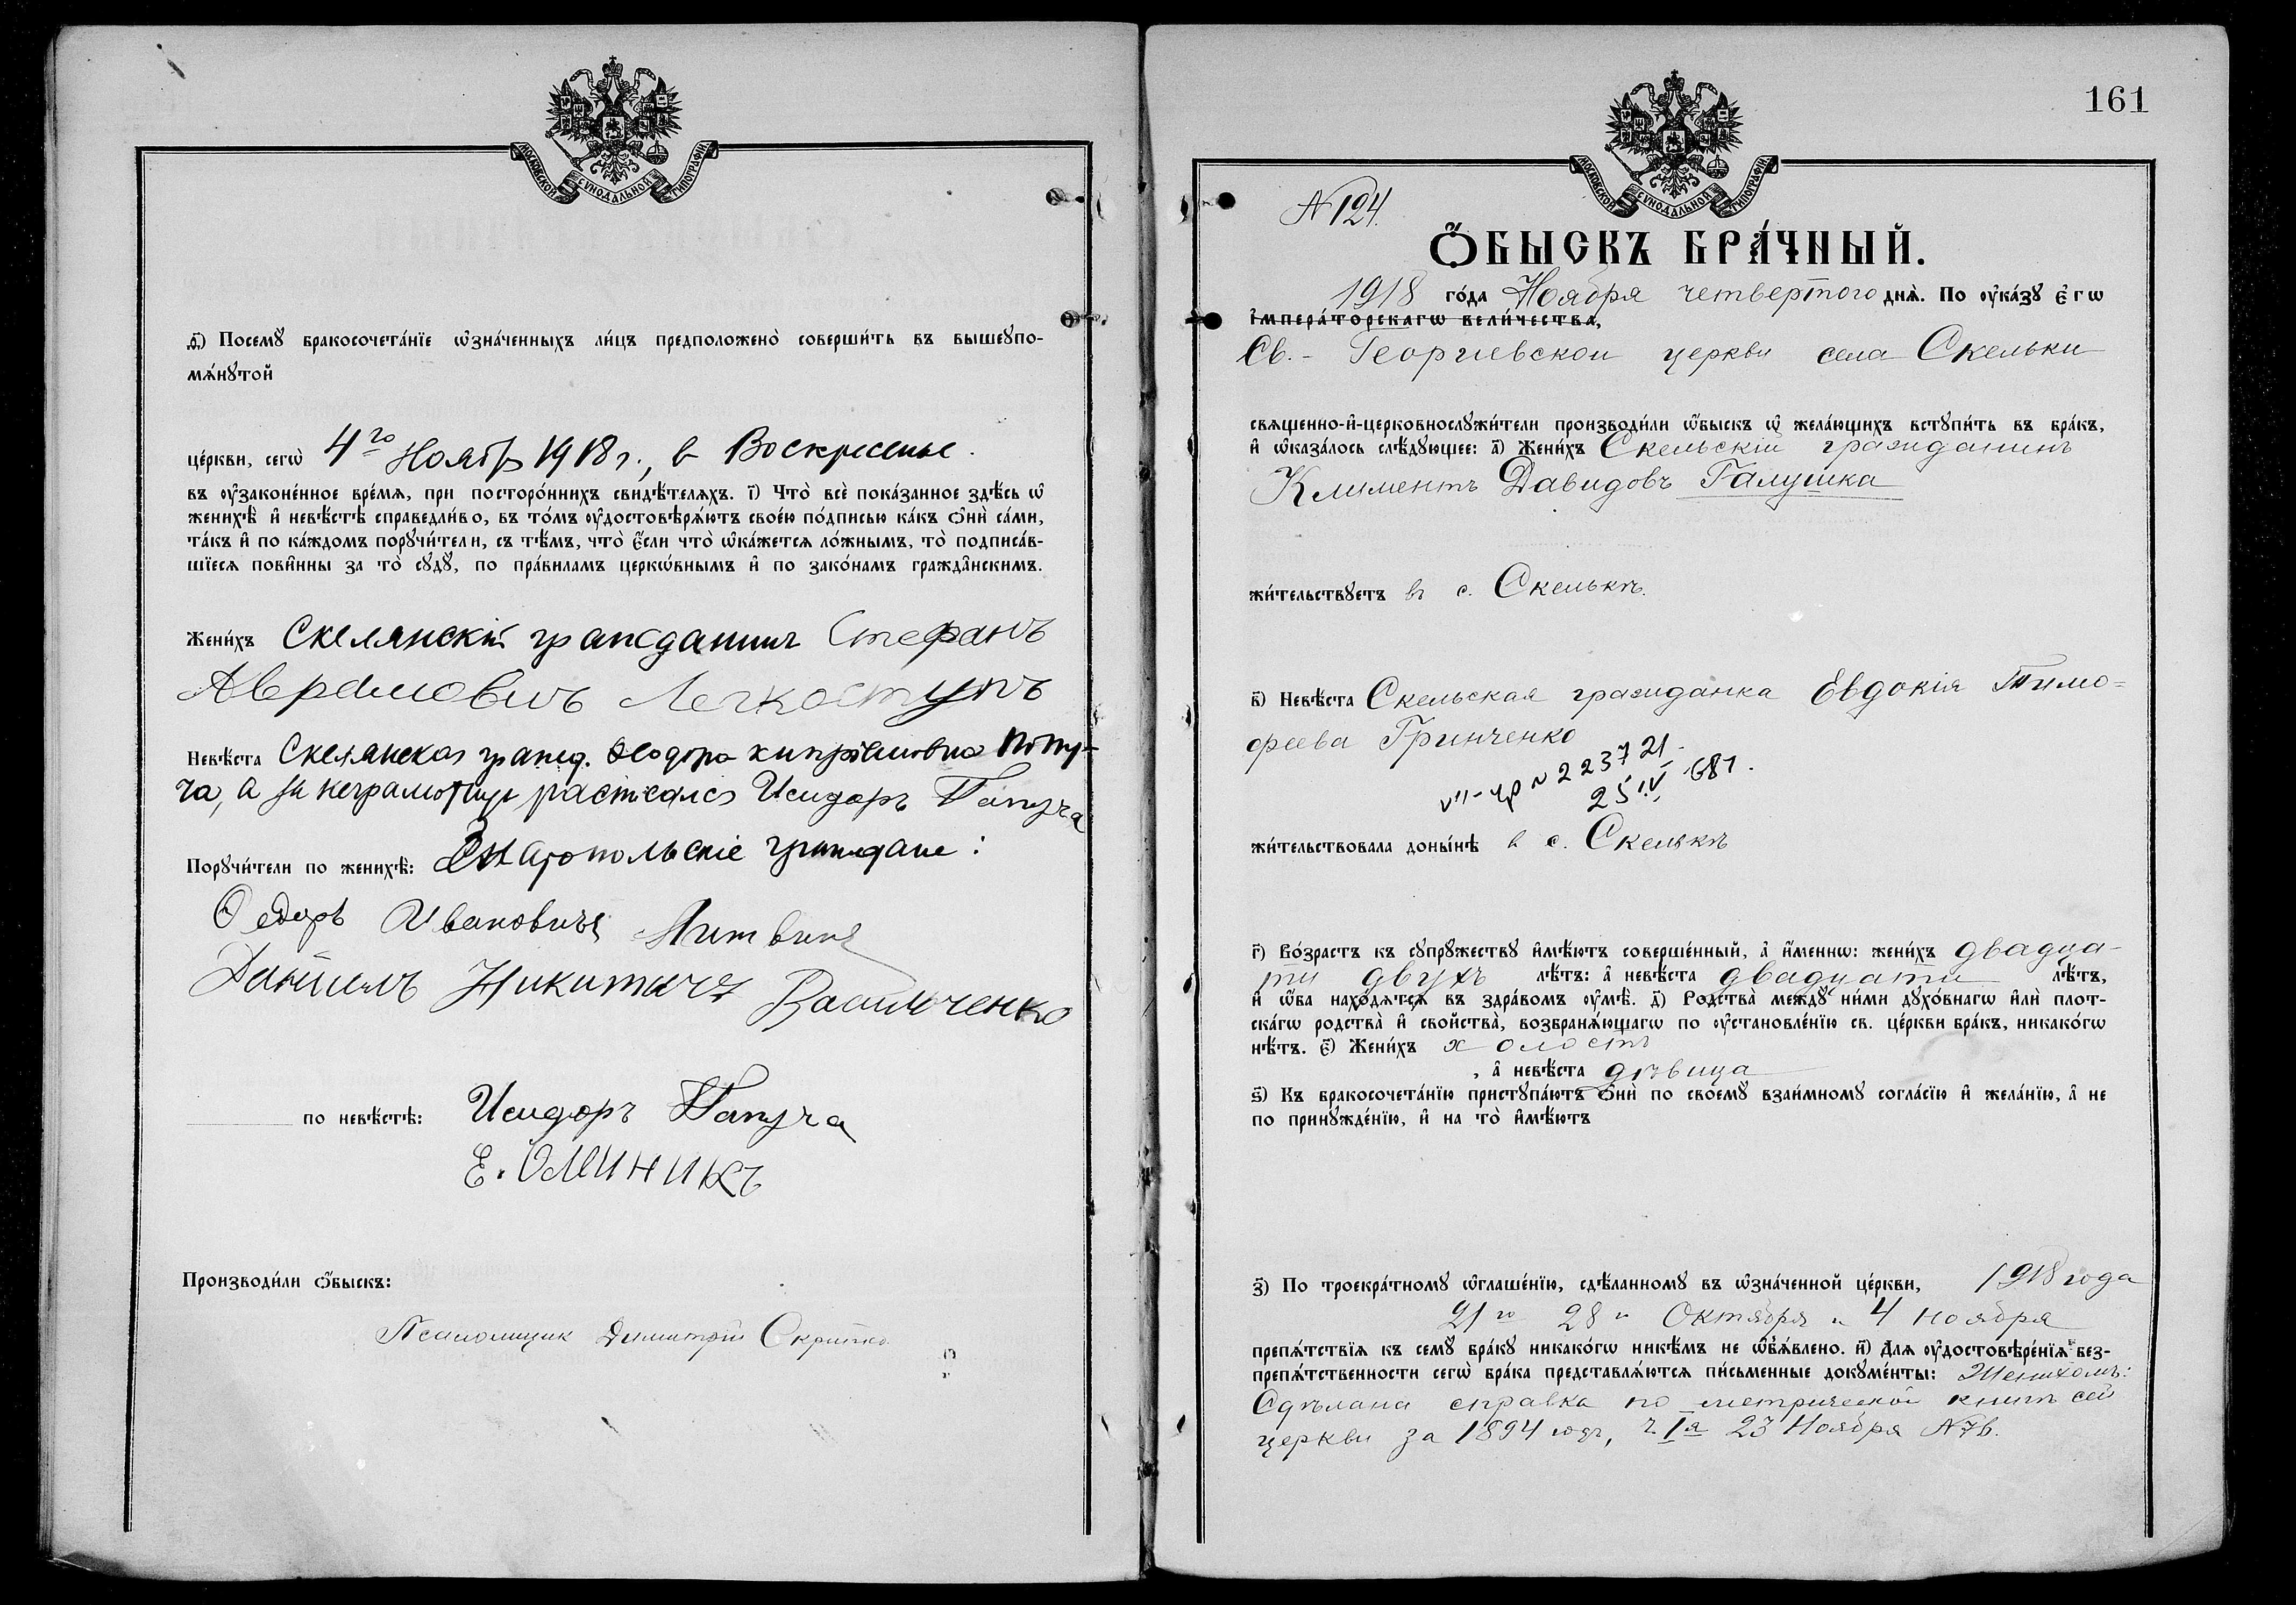 МОСКОВСКОЙ СѴНОДАЛЬНОЙ ТИПОГРАФІИ
д҃) Посемꙋ бракосочета́нїе ѡ҆зна́ченныхъ ли́цъ предположено̀ соверши́ть въ вышеꙋпо-
мѧ́нꙋтой
це́ркви, сегѡ̀ 4го Ноябр 1918 г., в Воскресенье.
въ ᲂу҆законе́нное вре́мѧ, при посторо́ннихъ свидѣ́телѧхъ. і҃) Что̀ всѐ пока́занное здѣ́сь ѡ҆
женихѣ̀ и҆ невѣ́стѣ справедли́во, въ то́мъ ᲂу҆достовѣрѧ́ютъ свое́ю по́дписью ка́къ ѻ҆нѝ са́ми,
та́къ и҆ по ка́ждомъ порꙋчи́тели, съ тѣ́мъ, что̀ є҆́сли что̀ ѡ҆ка́жетсѧ ло́жнымъ, то̀ подписа́в-
шїесѧ пови́нны за то̀ сꙋдꙋ̀, по пра́виламъ церкѡ́внымъ и҆ по зако́намъ гражда́нскимъ.
Жени́хъ Скелянскій гражданинъ Стефанъ
Аврамовичъ Легкоступъ
Невѣ́ста Скелянская гражд. Ѳеодора Кипріановна Папу-
ча, а за неграмотную расписался Исидоръ Папуча
Порꙋчи́тели по женихѣ̀: Ястаропольскіе граждане:
Ѳедоръ Ивановичъ Литвинъ
Даніилъ Никитичъ Васильченко
по невѣ́стѣ: Исидоръ Папуча
Е. Оминикъ
Производи́ли ѻ҆́быскъ:
Псаломщик Димитрій Скрипка
161
МОСКОВСКОЙ СѴНОДАЛЬНОЙ ТИПОГРАФІИ
N 124.
Ѻ҆́БЫСКЪ БРА́ЧНЫЙ.
1918 го́да Ноября четвертого днѧ̀. По ᲂу҆ка́зꙋ є҆гѡ̀
і҆мпера́торскагѡ вели́чества,
Св.-Георгіевской церкви села Скельки
свѧщенно-и҆-церковнослꙋжи́тели производи́ли ѻ҆́быскъ ѡ҆ жела́ющихъ встꙋпи́ть въ бра́къ,
и҆ ѡ҆каза́лось слѣ́дꙋющее: а҃) Жени́хъ Скельскій гражданинъ
Климентъ Давидовъ Галушка
жи́тельствꙋетъ въ с. Скелькѣ.
в҃) Невѣ́ста Скельская гражданка Евдокія Тимо-
феева Гринченко
VII-чр N 223721
25 IV 681.
жи́тельствовала доны́нѣ в с. Скелькѣ
г҃) Во́зрастъ къ сꙋпрꙋ́жествꙋ и҆мѣ́ютъ соверше́нный, а҆ и҆́меннѡ: жени́хъ двадца-
ти двухъ лѣ́тъ: а҆ невѣ́ста двадцати лѣ́тъ,
и҆ ѻ҆́ба нахо́дѧтсѧ въ здра́вомъ ᲂу҆мѣ̀. д҃) Родства̀ междꙋ̀ ни́ми дꙋхо́внагѡ и҆лѝ плот-
ска́гѡ родства̀ и҆ свойства̀, возбранѧ́ющагѡ по ᲂу҆становле́нїю св. це́ркви бра́къ, никако́гѡ
нѣ́тъ. є҃) Жени́хъ холостъ
, а҆ невѣ́ста дѣвица
ѕ҃) Къ бракосочета́нїю пристꙋпа́ютъ ѻ҆нѝ по своемꙋ̀ взаи́мномꙋ согла́сїю и҆ жела́нїю, а҆ не
по принꙋжде́нїю, и҆ на то̀ и҆мѣ́ютъ
з҃) По троекра́тномꙋ ѡ҆глаше́нїю, сдѣ́ланномꙋ въ ѡ҆зна́ченной це́ркви, 1918 года
21го 28 и Октября и 4 ноября
препѧ́тствїѧ къ семꙋ̀ бра́кꙋ никако́гѡ никѣ́мъ не ѡ҆б̾ѧ́влено. и҃) Длѧ ᲂу҆достовѣре́нїѧ без-
препѧ́тственности сегѡ̀ бра́ка представлѧ́ютсѧ пи́сьменные докꙋме́нты: Женихомъ:
Сдѣлана справка по метрической книгѣ сей
церкви за 1894 годъ, ч Iя 23 Ноября N 76.